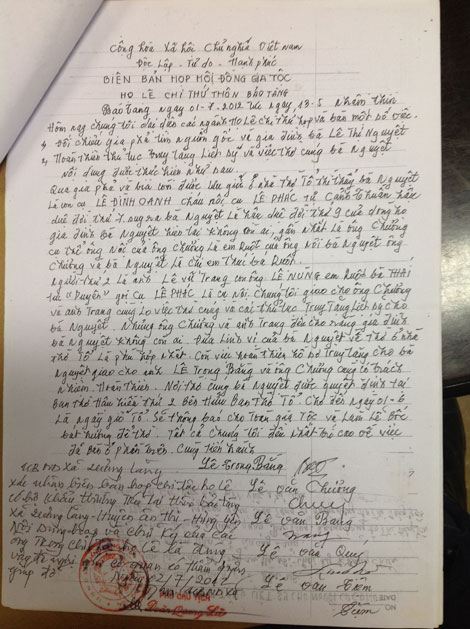 Cộng hòa Xã hội Chủ nghĩa Việt nam
Độc Lập - Tự do - Hạnh phúc
BIÊN BẢN HỌP HỘI ĐỒNG GIA TỘC
HỌ LÊ CHI THỨ THÔN BẢO TÀNG
Bảo tàng ngày 01-7-2012 tức ngày 13-5 Nhâm thìn
Hôm nay chúng tôi đại diện các ngành Họ Lê chi thứ họp và bàn một số việc.
Đối chiếu gia phả tìm nguồn gốc và gia đình bà Lê Thị Nguyệt
Hoàn thiện thủ tục truy tặng Liệt sỹ và việc thờ cúng bà Nguyệt
Nội dung được thực hiện như sau.
Qua gia phả và bia còn được lưu giữ ở nhà thờ Tổ thì thấy bà Nguyệt
Là con cụ LÊ ĐÌNH OANH cháu nội cụ LÊ PHÁC tự Cảnh Thuần hậu
duệ đời thứ 7. Suy ra bà Nguyệt Là hậu duệ đời thứ 9 của dòng họ
gia đình Bà Nguyệt hiện tại không còn ai, gần nhất Là ông Chưởng
cụ thể ông Nội của ông Chưởng Là em Ruột của ông Nội bà Nguyệt ông
Chưởng và bà Nguyệt Là chị em thúc bá Ruột.
Người thứ 2 Là anh Lê Vũ Trang con ông LÊ NUNG em Ruột bà THÁI
tức "Duyên" gọi cụ LÊ PHÁC Là cụ Nội. Chúng tôi giao cho ông Chưởng
và anh Trang cùng Lo việc thờ cúng và các thủ tục Truy Tặng Liệt sỹ cho
bà Nguyệt. Nhưng ông Chưởng và anh Trang đều cho rằng gia đình
bà Nguyệt không còn ai. Đưa Linh vị của bà Nguyệt về thờ ở nhà
thờ Tổ Là phù hợp nhất. Còn việc hoàn thiện hồ sơ truy tặng cho Bà
Nguyệt giao cho anh LÊ Trọng Bằng và ông Chưởng cùng có trách
nhiệm hoàn thiện. Nơi thờ cúng bà Nguyệt được quyết định tại
Ban thờ Hậu hiền thứ 2 Bên Hữu Ban thờ Tổ. Chờ đến ngày 01-6
Là ngày giỗ Tổ. Sẽ thông báo cho toàn gia Tộc và Làm Lễ bốc
bát hương để thờ. Tất cả chúng tôi đều nhất trí cao về việc
đã bàn ở phần trên. Cùng tiến hành
UBND Xã Dương Lang
Lê Trọng Bằng
xác nhận biên bản họp chi tộc họ Lê
Lê Văn Chưởng
có hộ khẩu thường trú tại thôn bảo tàng
Lê Văn Bang
Nội dung và chữ ký của các
ông Trong chi họ Lê là đúng
Lê Văn Quý
Lê Văn Điềm
giúp đỡ
Ngày 02/7/2012
PHÓ CHỦ TỊCH
Điềm